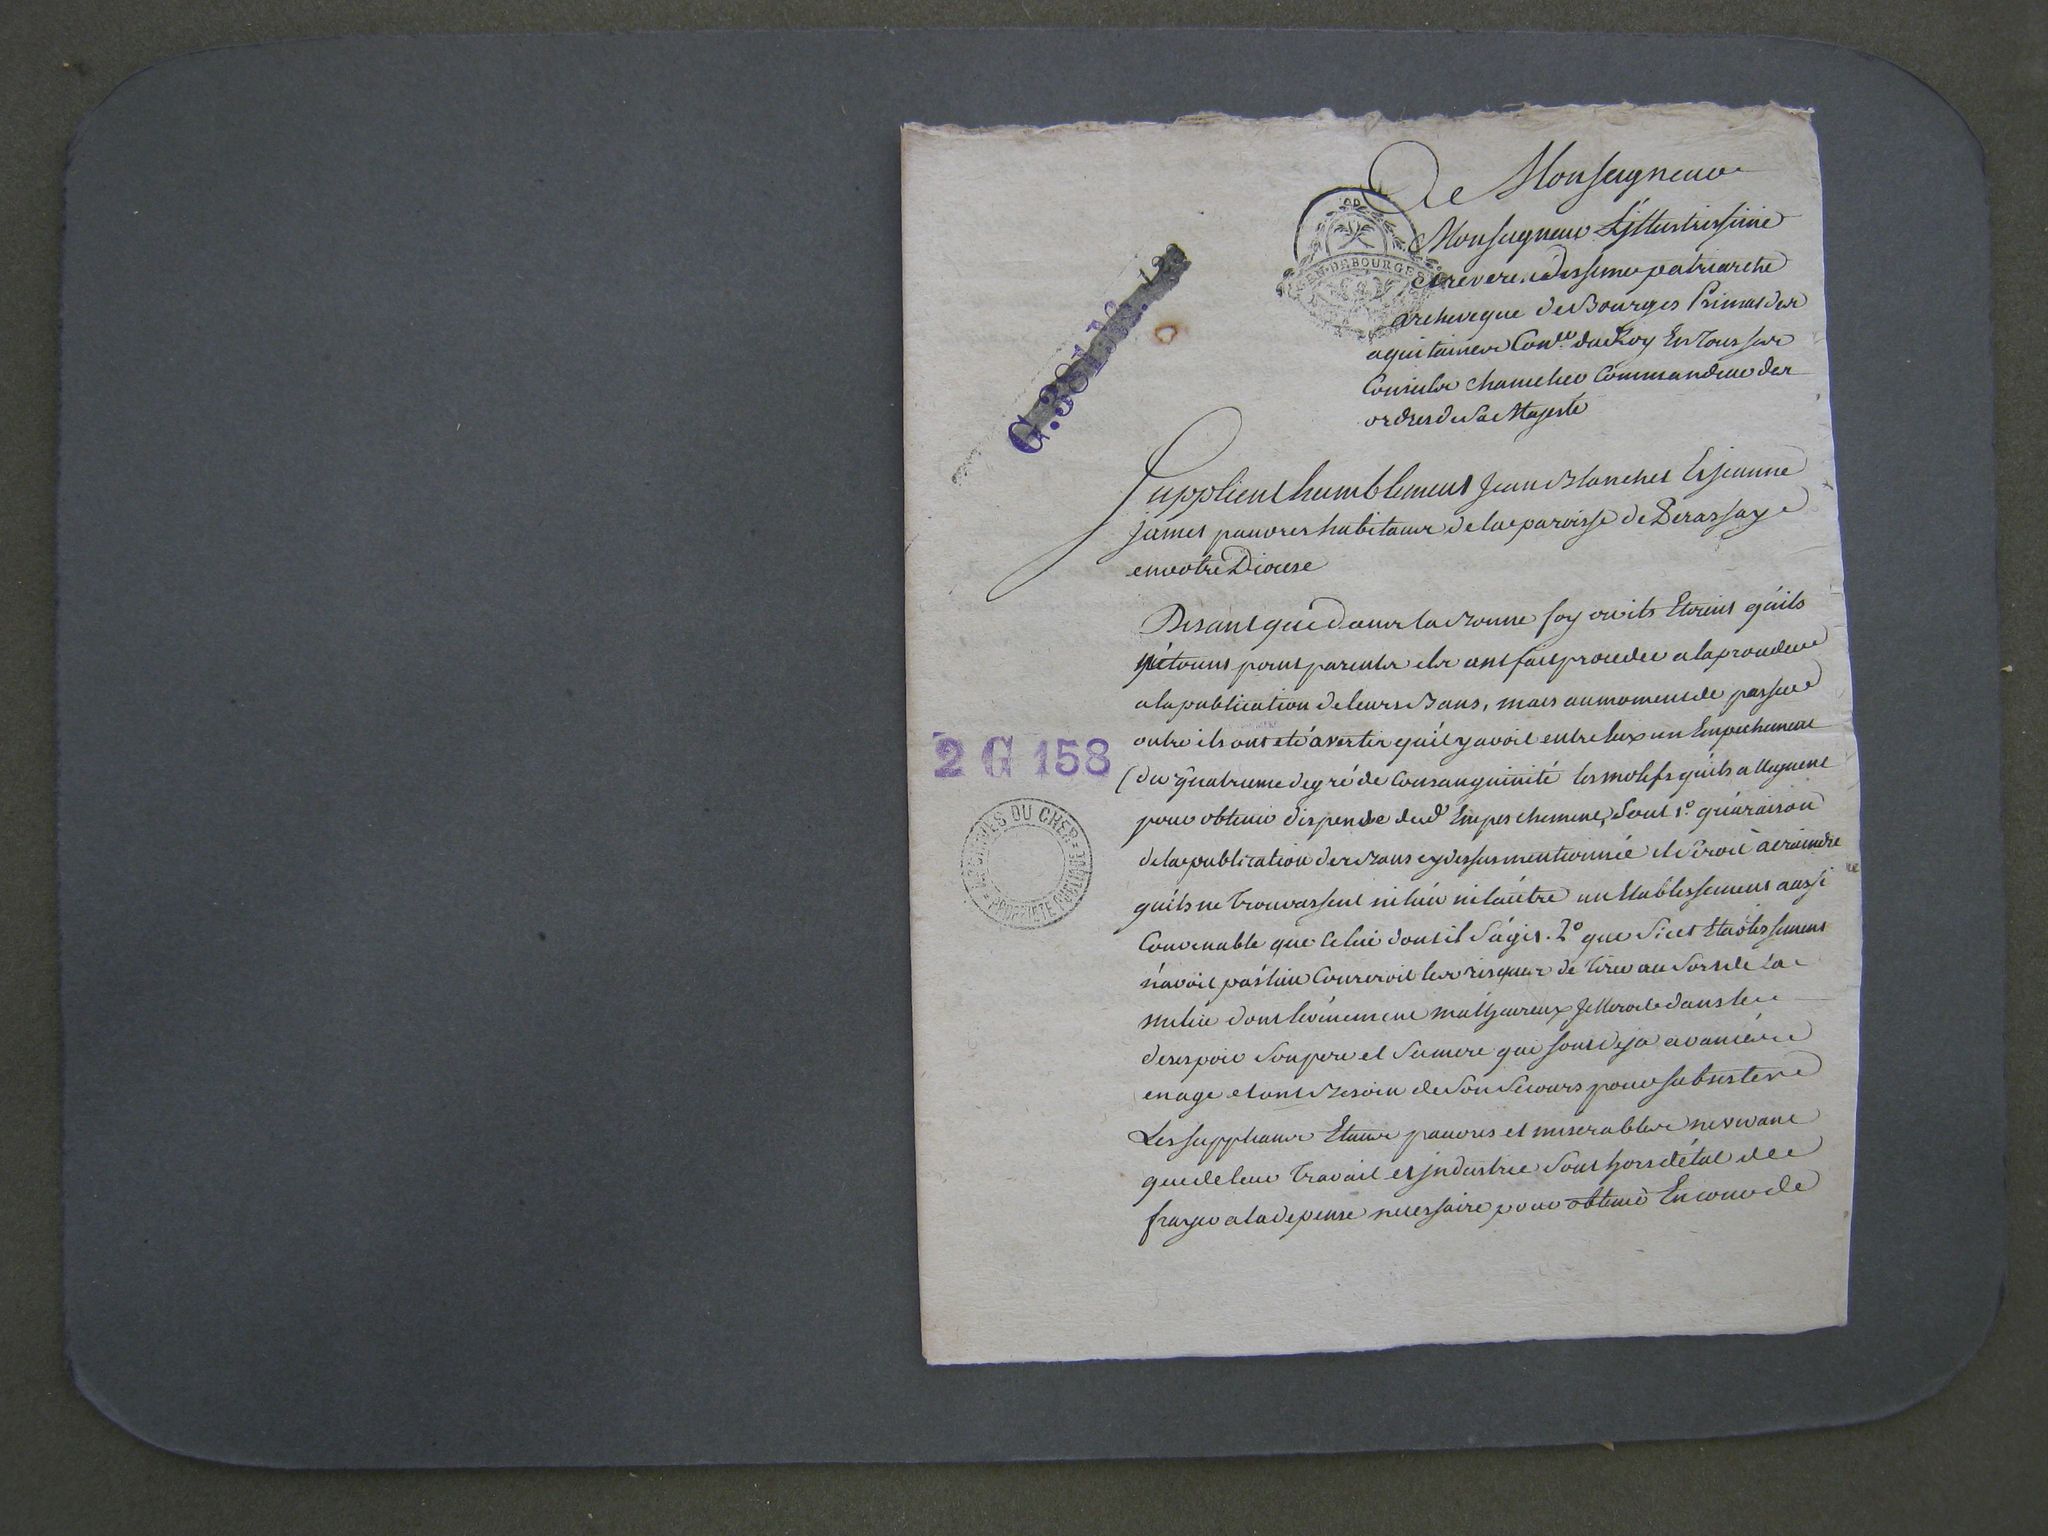 De Monseigneur
Monseigneur L'jllustrissime
et reverendissime patriarche
archeveque de Bourges Primat des
aquitaines Con.er du Roy En tous ses
Conseils chancelier Commandeur des
ordres de Sa Majesté
GEN. DE BOURGES
G. 381
Supplient humblement Jean Blanchet Et jeanne
james pauvres habitans de la paroisse de Perassay
en votre Diocese
Disant que dans la Bonne foy où ils Etoient qu'ils
n'étoient point parents ils ont fait proceder a la proceder
a la publication de leurs Bans, mais au moment de passer
outre ils ont eté avertis qu'il y avoit entre Eux un Empechement
2 G 158
du quatrieme degré de Consanguinité les motifs qu'ils alleguent
pour obtenir dispense dud. Empeschement, Sont 1.º qu'a raison
de la publication des Bans cy dessus mentionnée il seroit à craindre
ARCHIVES DU CHER
PROPRIÉTÉ PUBLIQUE
qu'ils ne trouvassent ni l'un ni l'autre un Etablissement aussi
Convenable que Celui dont il S'agit. 2.º que Si cet Etablissement
n'avoit pas lieu Courroit les risques de tirer au Sort de la
milice dont l'évenement malheureux jetteroit dans le
desespoir Son pere et Sa mere qui sont deja avancés
en age et ont Besoin de Son Secours pour subsister
Les supplians Etans pauvres et miserables ne vivant
que de leur travail et jndustrie Sont hors d'état de
frayer a la depense necessaire pour obtenir En cour de